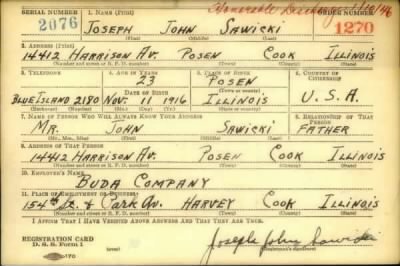 SERIAL NUMBER 1. NAME (Print) Honorable ORDER NUMBER
2076 JOSEPH JOHN SAWICKI 1270
(First) (Middle) (Last)
2. ADDRESS (Print)
14412 HARRISON AV. POSEN COOK ILLINOIS
(Number and street or R. F. D. number) (Town) (County) (State)
3. TELEPHONE 4. AGE IN YEARS 5. PLACE OF BIRTH 6. COUNTRY OF CITIZENSHIP
23 POSEN
DATE OF BIRTH (Town or county)
BLUE ISLAND 2180 NOV. 11 1916 ILLINOIS U. S. A.
(Exchange) (Number) (Mo.) (Day) (Yr.) (State or country)
7. NAME OF PERSON WHO WILL ALWAYS KNOW YOUR ADDRESS 8. RELATIONSHIP OF THAT PERSON
MR. JOHN SAWICKI FATHER
(Mr., Mrs., Miss) (First) (Middle) (Last)
9. ADDRESS OF THAT PERSON
14412 HARRISON AV. POSEN COOK ILLINOIS
(Number and street or R. F. D. number) (Town) (County) (State)
10. EMPLOYER'S NAME
BUDA COMPANY
11. PLACE OF EMPLOYMENT OR BUSINESS
154th & PARK AV. HARVEY COOK ILLINOIS
(Number and street or R. F. D. number) (Town) (County) (State)
I AFFIRM THAT I HAVE VERIFIED ABOVE ANSWERS AND THAT THEY ARE TRUE.
REGISTRATION CARD
D. S. S. Form 1 Joseph John Sawicki
(Registrant's signature)